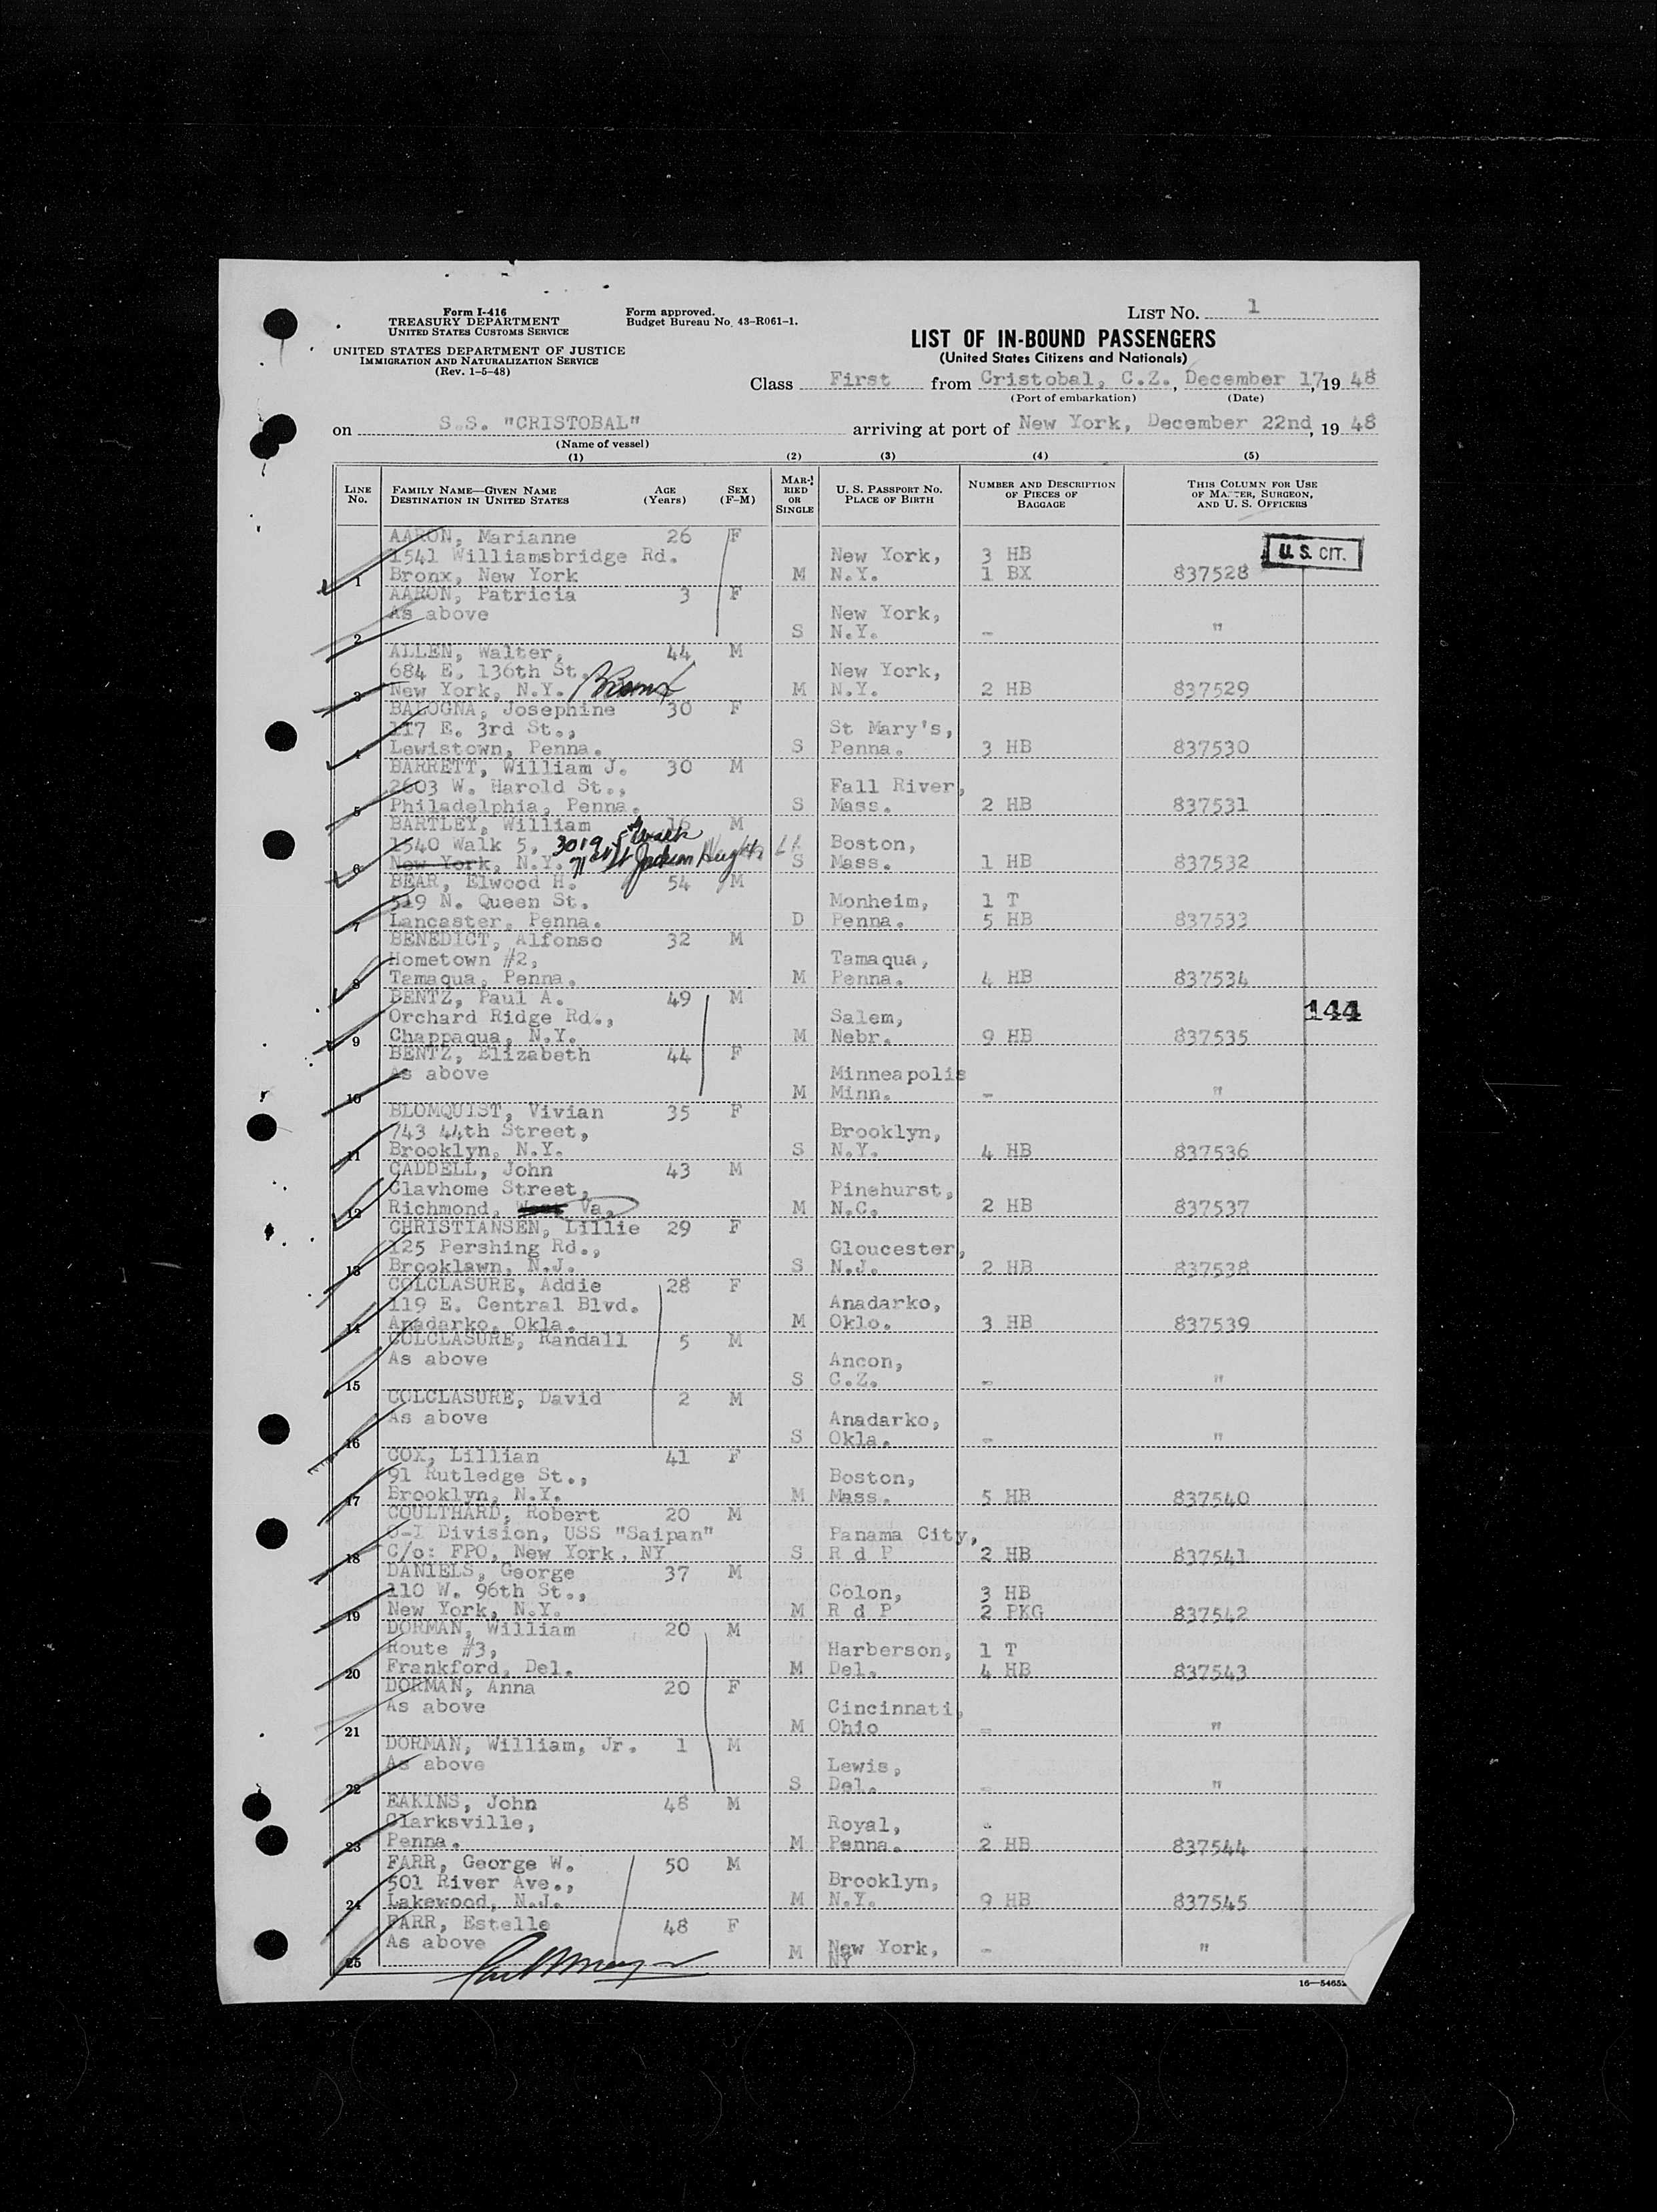 Form I-416
TREASURY DEPARTMENT
UNITED STATES CUSTOMS SERVICE
UNITED STATES DEPARTMENT OF JUSTICE
IMMIGRATION AND NATURALIZATION SERVICE
(Rev. 1-5-48)
Form approved.
Budget Bureau No. 43-R061-1.
LIST NO. 1
LIST OF IN-BOUND PASSENGERS
(United States Citizens and Nationals)
Class First from Cristobal, C.Z., December 17, 19 48
(Port of embarkation) (Date)
on S.S. "CRISTOBAL" arriving at port of New York, December 22nd, 19 48
(Name of vessel)
(1) (2) (3) (4) (5)
LINE No. FAMILY NAME—GIVEN NAME DESTINATION IN UNITED STATES AGE (Years) SEX (F-M) MARRIED OR SINGLE U. S. PASSPORT NO. PLACE OF BIRTH NUMBER AND DESCRIPTION OF PIECES OF BAGGAGE THIS COLUMN FOR USE OF MASTER, SURGEON, AND U. S. OFFICERS
AARON, Marianne 26 F
1541 Williamsbridge Rd. New York, 3 HB U.S. CIT.
1 Bronx, New York M N.Y. 1 BX 837528
AARON, Patricia 3 F
As above New York,
2 S N.Y. - "
ALLEN, Walter, 44 M
684 E. 136th St. New York,
3 New York, N.Y. Bronx M N.Y. 2 HB 837529
BALOGNA, Josephine 30 F
117 E. 3rd St., St Mary's,
4 Lewistown, Penna. S Penna. 3 HB 837530
BARRETT, William J. 30 M
2603 W. Harold St., Fall River,
5 Philadelphia, Penna. S Mass. 2 HB 837531
BARTLEY, William 16 M
1540 Walk 5, 3019 Boston,
6 New York, N.Y. 71st St Jackson Heights LI S Mass. 1 HB 837532
BEAR, Elwood H. 54 M
519 N. Queen St. Monheim, 1 T
7 Lancaster, Penna. D Penna. 5 HB 837533
BENEDICT, Alfonso 32 M
Hometown #2, Tamaqua,
8 Tamaqua, Penna. M Penna. 4 HB 837534
BENTZ, Paul A. 49 M 144
Orchard Ridge Rd., Salem,
9 Chappaqua, N.Y. M Nebr. 9 HB 837535
BENTZ, Elizabeth 44 F
As above Minneapolis
10 M Minn. - "
BLOMQUIST, Vivian 35 F
743 44th Street, Brooklyn,
11 Brooklyn, N.Y. S N.Y. 4 HB 837536
CADDELL, John 43 M
Clayhome Street, Pinehurst,
12 Richmond, West Va. M N.C. 2 HB 837537
CHRISTIANSEN, Lillie 29 F
125 Pershing Rd., Gloucester,
13 Brooklawn, N.J. S N.J. 2 HB 837538
COLCLASURE, Addie 28 F
119 E. Central Blvd. Anadarko,
14 Anadarko, Okla. M Oklo. 3 HB 837539
COLCLASURE, Randall 5 M
As above Ancon,
15 S C.Z. - "
COLCLASURE, David 2 M
As above Anadarko,
16 S Okla. - "
COX, Lillian 41 F
91 Rutledge St., Boston,
17 Brooklyn, N.Y. M Mass. 5 HB 837540
COULTHARD, Robert 20 M
O-I Division, USS "Saipan" Panama City,
18 C/o: FPO, New York, NY S R d P 2 HB 837541
DANIELS, George 37 M
110 W. 96th St., Colon, 3 HB
19 New York, N.Y. M R d P 2 PKG 837542
DORMAN, William 20 M
Route #3, Harberson, 1 T
20 Frankford, Del. M Del. 4 HB 837543
DORMAN, Anna 20 F
As above Cincinnati,
21 M Ohio - "
DORMAN, William, Jr. 1 M
As above Lewis,
22 S Del. - "
EAKINS, John 48 M
Clarksville, Royal,
23 Penna. M Penna. 2 HB 837544
FARR, George W. 50 M
501 River Ave., Brooklyn,
24 Lakewood, N.J. M N.Y. 9 HB 837545
FARR, Estelle 48 F
As above M New York, - "
25 NY